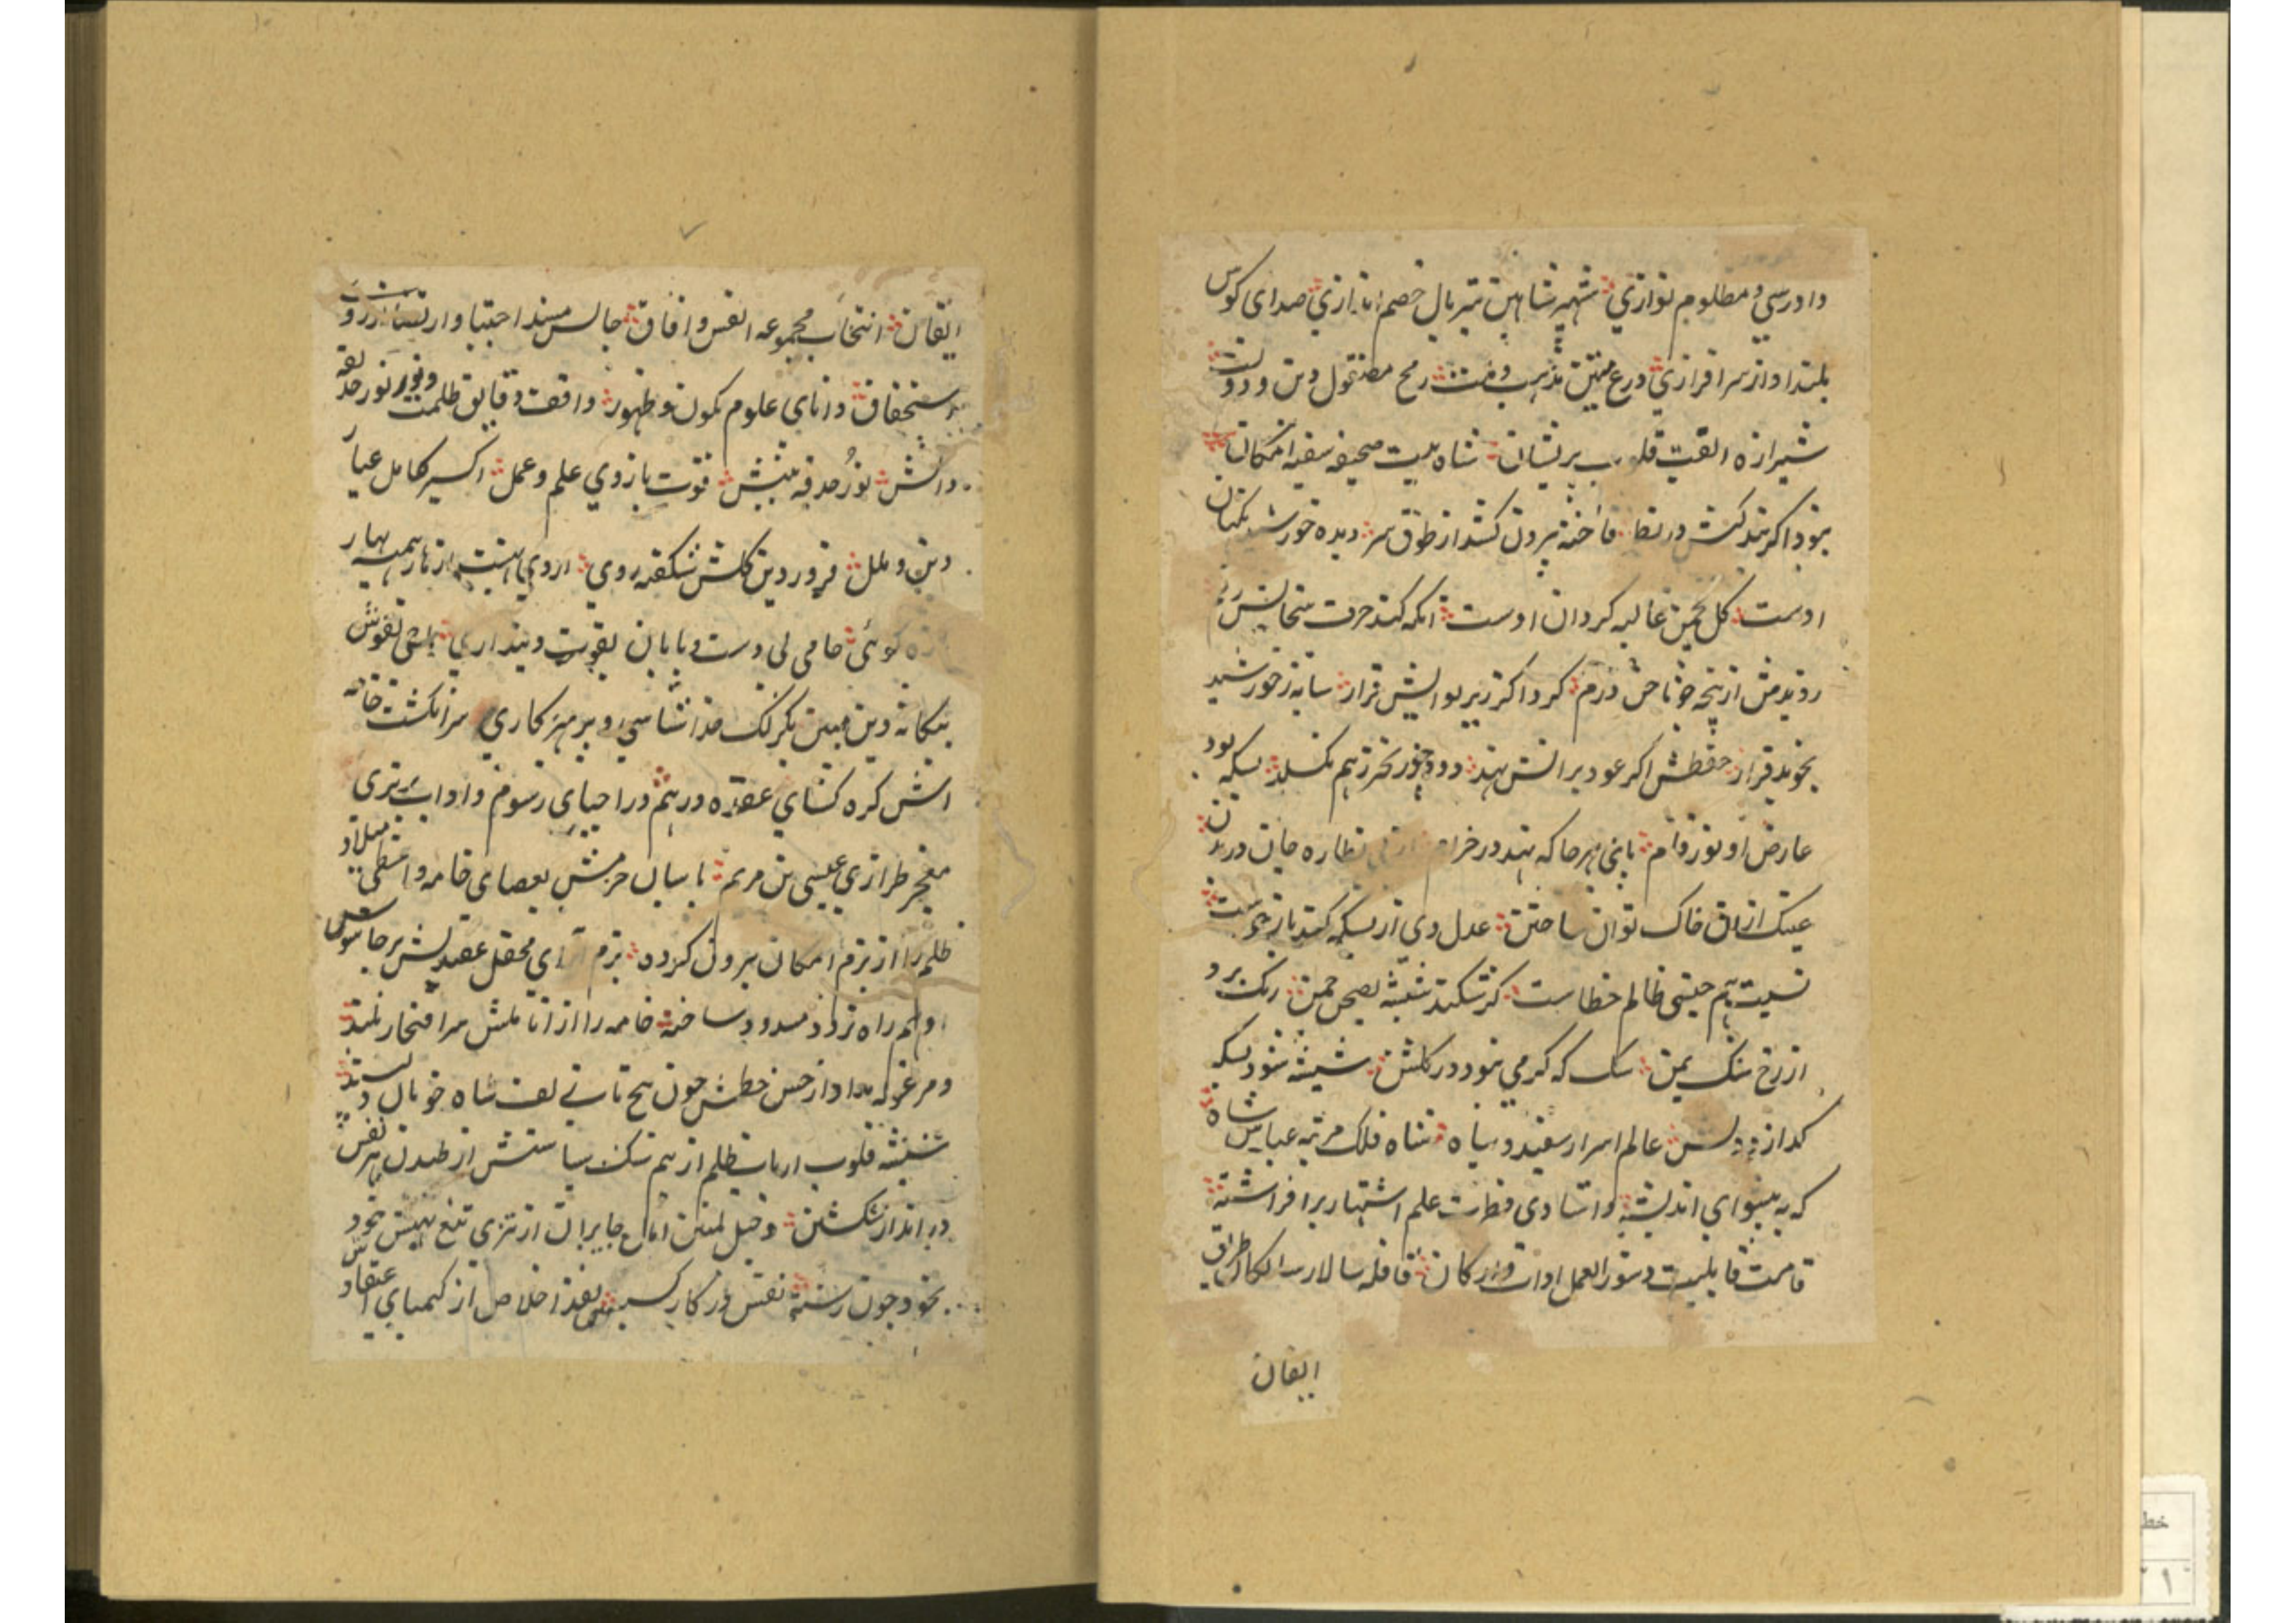 دادرسی و مظلوم نوازی شهپر شاهین تیز بال خصم اندازی صدای کوس
بلند اواز سرافرازی درع متین مذهب و ملت رمح مصقول دین و دولت
شیرازه الفت قلوب پریشان شاه بیت صحیفه سفینه امکان
بود اگر بند کیش در نظا فاخته بیرون کشد از طوق سر دیده خورشید نگهبان
اوست کل چمن غالیه کردان اوست انکه کند حرف سخایش رقم
روید مش از پنجه چو ناخن درم کرد اگر زیر لوایش قرار سایه ز خورشید
بخوید قرار حفظش اگر عود بر اتش نهد دود بخور تخرز هم نکسلد بسکه بود
عارض او نور فام با پی هر جا که نهد در خرام از پی نظاره جان در بدن
عینک ازان خاک توان ساختن عدل وی از بسکه کند باز خواست
نسیت بهم چشمی ظالم خطاست کر شکند شیشه بصحن چمن رنک برد
از رخ سنک یمن سنک که کرمی نبود در کلشن شیشه شود بسکه
کدازد دلش عالم اسرار سفید و سیاه شاه فلک مرتبه عباس شاه
که به پیشوای اندیشه و استادی فطرت علم اشتهار بر افراشته
قامت قابلیت دستور العمل ادات و ارکان قافله سالار سالکان طریق
ایقان
ایقان انتخاب مجموعه انفس و افاق جالس مسند اجتبا و ارتضا از روی
استحقاق دانای علوم کمون و ظهور واقف دقایق ظلمت و نور نور حدقه
دانش نور حدقه بینش قوت بازوی علم و عمل اکسیر کامل عیار
دین و ملل فروردین کلشن شکفته روی اردی بهشت از هار همیشه بهار
تازه کوئی حامی بی دست و پایان بقویت دینداری ماحی نقوش
بیکانه دین مبین بکرنک خدا شناسی و پرهیز کاری سر انکشت خامه
اش کره کشای عقده درهم در احیای رسوم و اداب برتری
معجز طرازی عیسی بن مریم پاسبان حزمش بعصای خامه و مشعل
ظلم را از بزم امکان بیرون کرده بزم ارای محفل عقیدتش بر جاسوس
وهم راه تردد مسدود ساخته خامه را از اناملش سر افتخار بلند
و مرغوله مداد از حسن خطش چون پیچ تاب زلف شاه خوبان دلپسند
شیشه قلوب ارباب ظلم از بیم سنک سیاستش از طپیدن هر نفس
در انداز شکستن و خیل لعین امان جابران از تیزی تیغ نهیبش بخود
بخود چون رشته نفس در کار کسستن نقد اخلاص از کیمیای اعتقادش